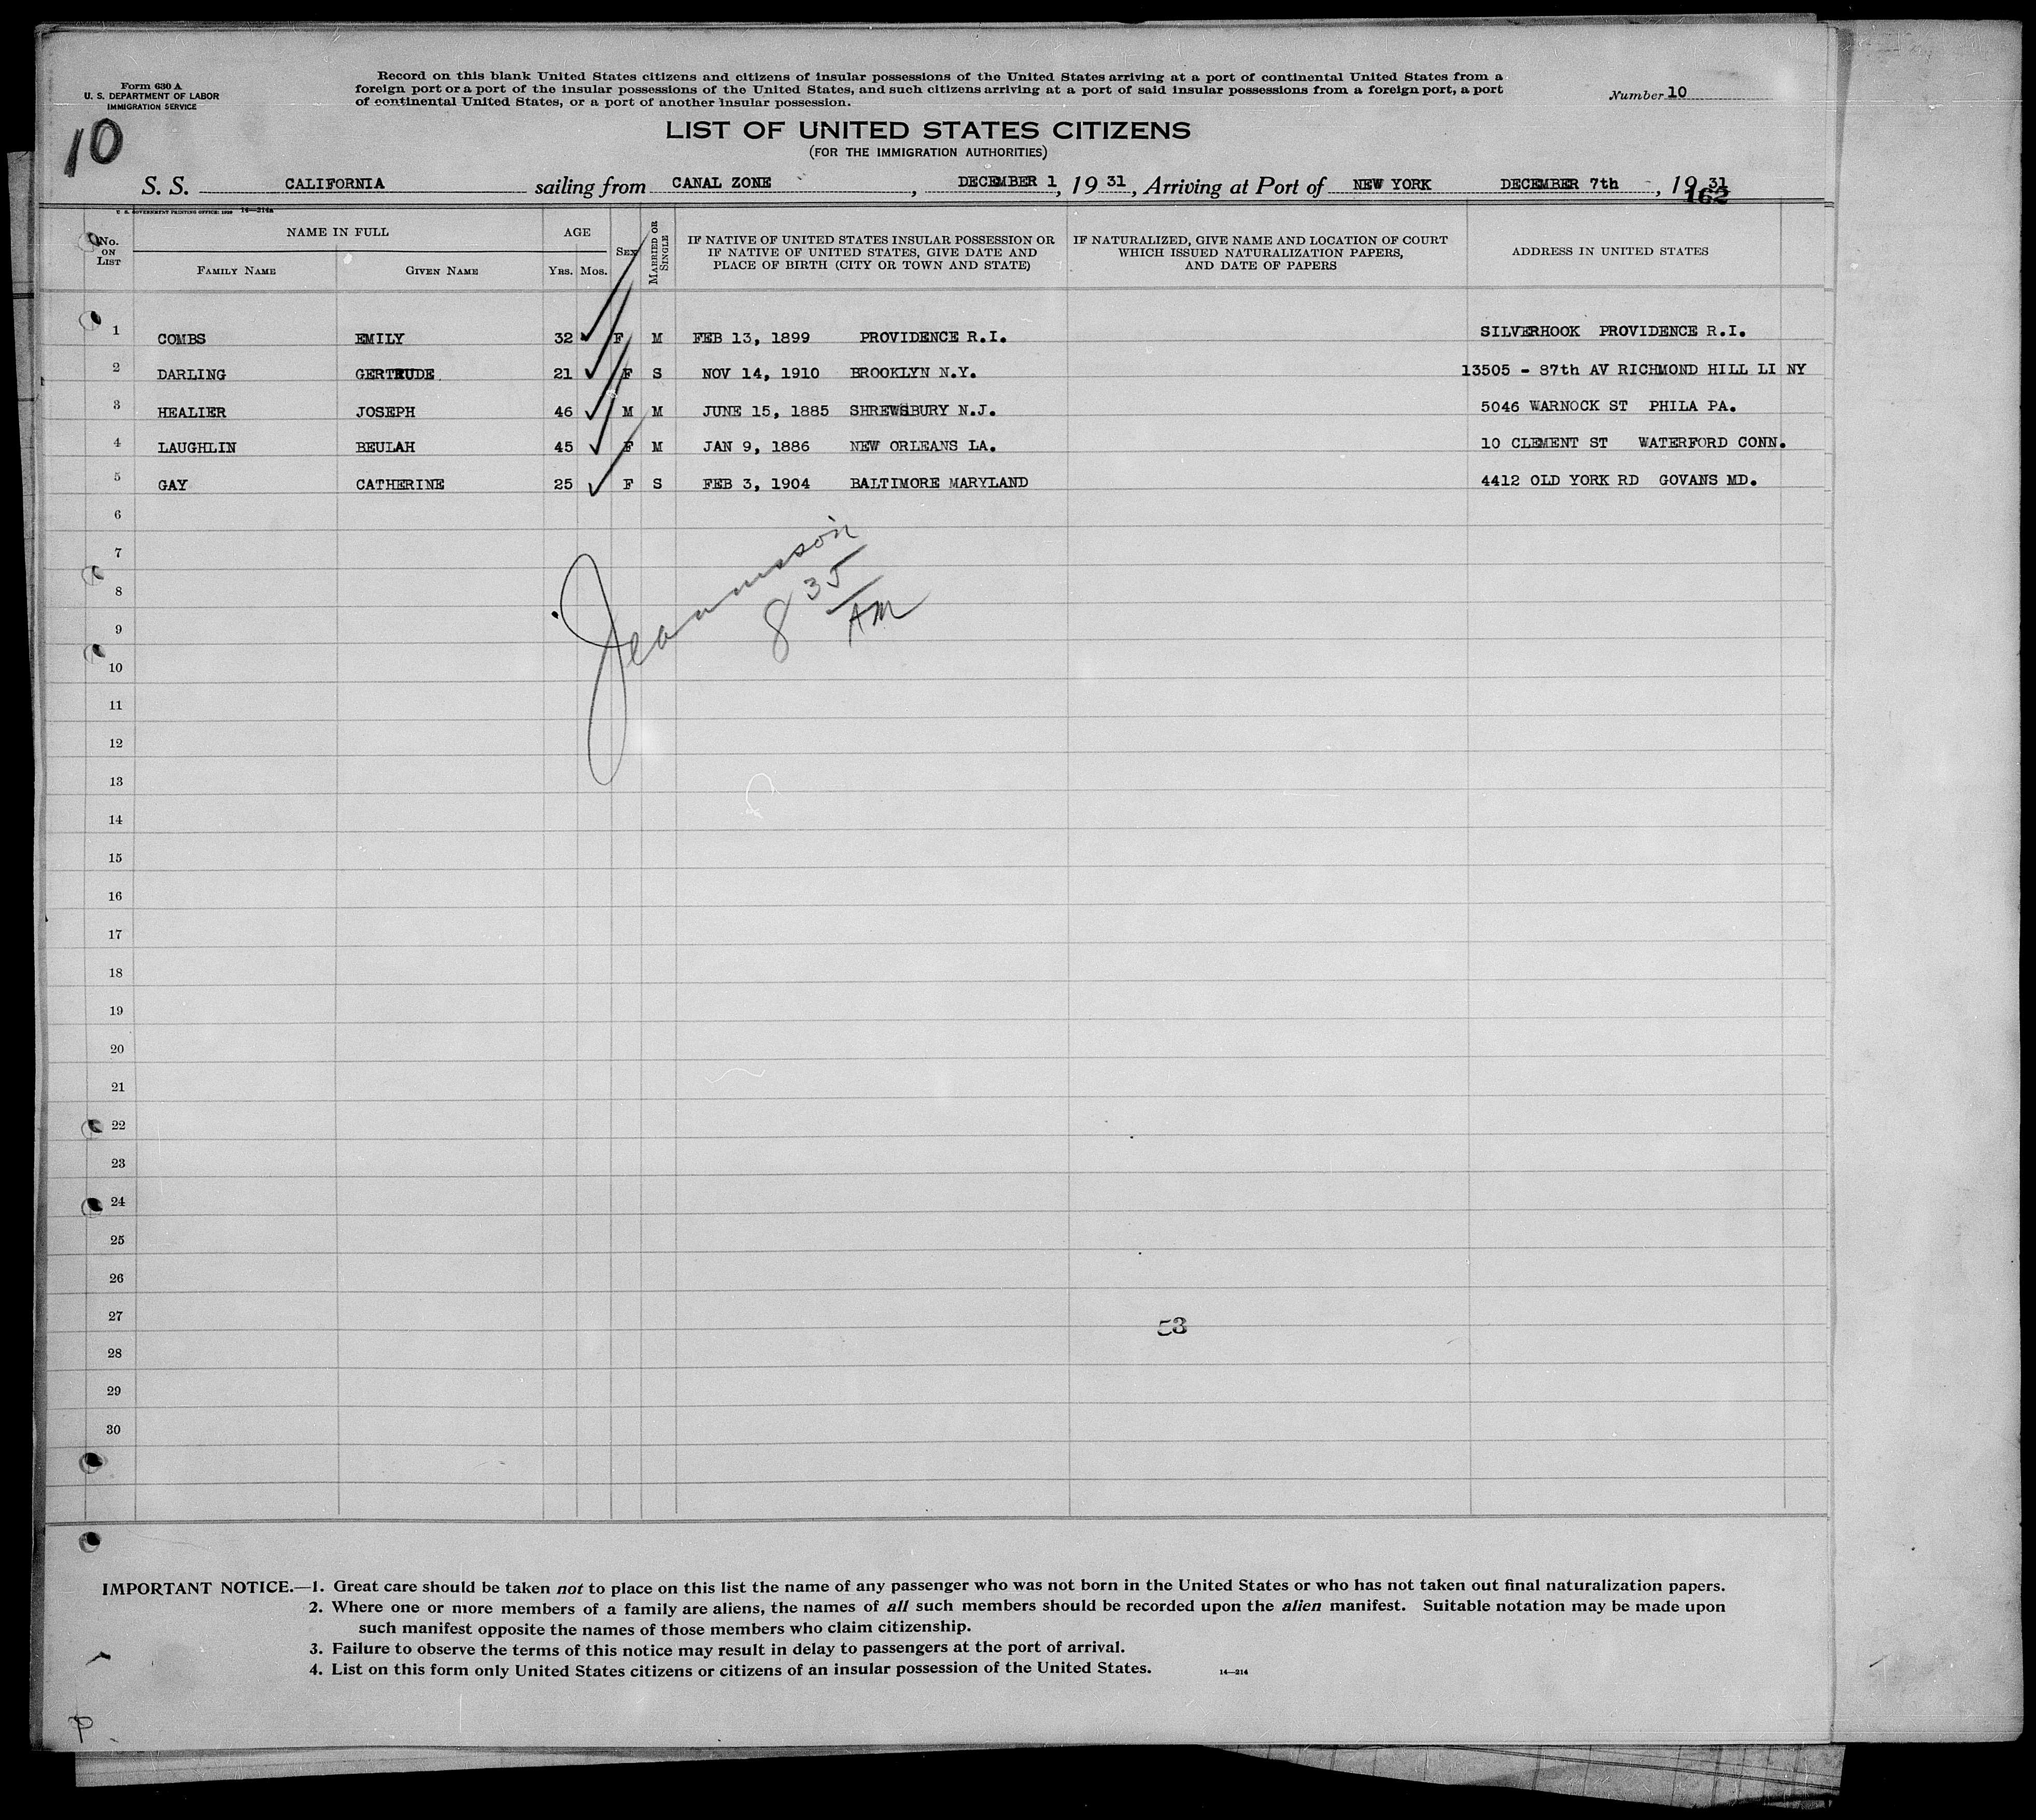 Form 630 A
U. S. DEPARTMENT OF LABOR
IMMIGRATION SERVICE
Record on this blank United States citizens and citizens of insular possessions of the United States arriving at a port of continental United States from a
foreign port or a port of the insular possessions of the United States, and such citizens arriving at a port of said insular possessions from a foreign port, a port
of continental United States, or a port of another insular possession.
Number 10
10
LIST OF UNITED STATES CITIZENS
(FOR THE IMMIGRATION AUTHORITIES)
S. S. CALIFORNIA sailing from CANAL ZONE, DECEMBER 1, 1931, Arriving at Port of NEW YORK DECEMBER 7th, 1931
162
U. S. GOVERNMENT PRINTING OFFICE: 1929 14—214a
No. ON LIST
NAME IN FULL
FAMILY NAME
GIVEN NAME
AGE
YRS. MOS.
SEX
MARRIED OR SINGLE
IF NATIVE OF UNITED STATES INSULAR POSSESSION OR
IF NATIVE OF UNITED STATES, GIVE DATE AND
PLACE OF BIRTH (CITY OR TOWN AND STATE)
IF NATURALIZED, GIVE NAME AND LOCATION OF COURT
WHICH ISSUED NATURALIZATION PAPERS,
AND DATE OF PAPERS
ADDRESS IN UNITED STATES
1 COMBS EMILY 32 F M FEB 13, 1899 PROVIDENCE R.I. SILVERHOOK PROVIDENCE R.I.
2 DARLING GERTRUDE 21 F S NOV 14, 1910 BROOKLYN N.Y. 13505 - 87th AV RICHMOND HILL LI NY
3 HEALIER JOSEPH 46 M M JUNE 15, 1885 SHREWSBURY N.J. 5046 WARNOCK ST PHILA PA.
4 LAUGHLIN BEULAH 45 F M JAN 9, 1886 NEW ORLEANS LA. 10 CLEMENT ST WATERFORD CONN.
5 GAY CATHERINE 25 F S FEB 3, 1904 BALTIMORE MARYLAND 4412 OLD YORK RD GOVANS MD.
6
7
8
8 35 AM
9
10
11
12
13
14
15
16
17
18
19
20
21
22
23
24
25
26
27
53
28
29
30
IMPORTANT NOTICE.—1. Great care should be taken not to place on this list the name of any passenger who was not born in the United States or who has not taken out final naturalization papers.
2. Where one or more members of a family are aliens, the names of all such members should be recorded upon the alien manifest. Suitable notation may be made upon
such manifest opposite the names of those members who claim citizenship.
3. Failure to observe the terms of this notice may result in delay to passengers at the port of arrival.
4. List on this form only United States citizens or citizens of an insular possession of the United States.
14—214
P